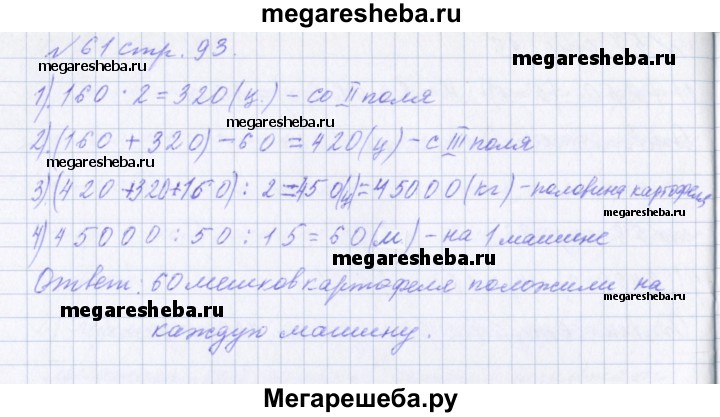 megaresheba.ru
№ 61 стр. 93.
megaresheba.ru megaresheba.ru
1). 160 · 2 = 320 (ц.) – со II поля
megaresheba.ru
2). (160 + 320) – 60 = 420 (ц) – с III поля
megaresheba.ru
3) (420 + 320 + 160) : 2 = 450 (ц) = 45000 (кг) – половина картофеля
megaresheba.ru
4) 45000 : 50 : 15 = 60 (м.) – на 1 машине
megaresheba.ru
Ответ: 60 мешков картофеля положили на
megaresheba.ru megaresheba.ru
каждую машину.
megaresheba.ru
Мегарешеба.ру